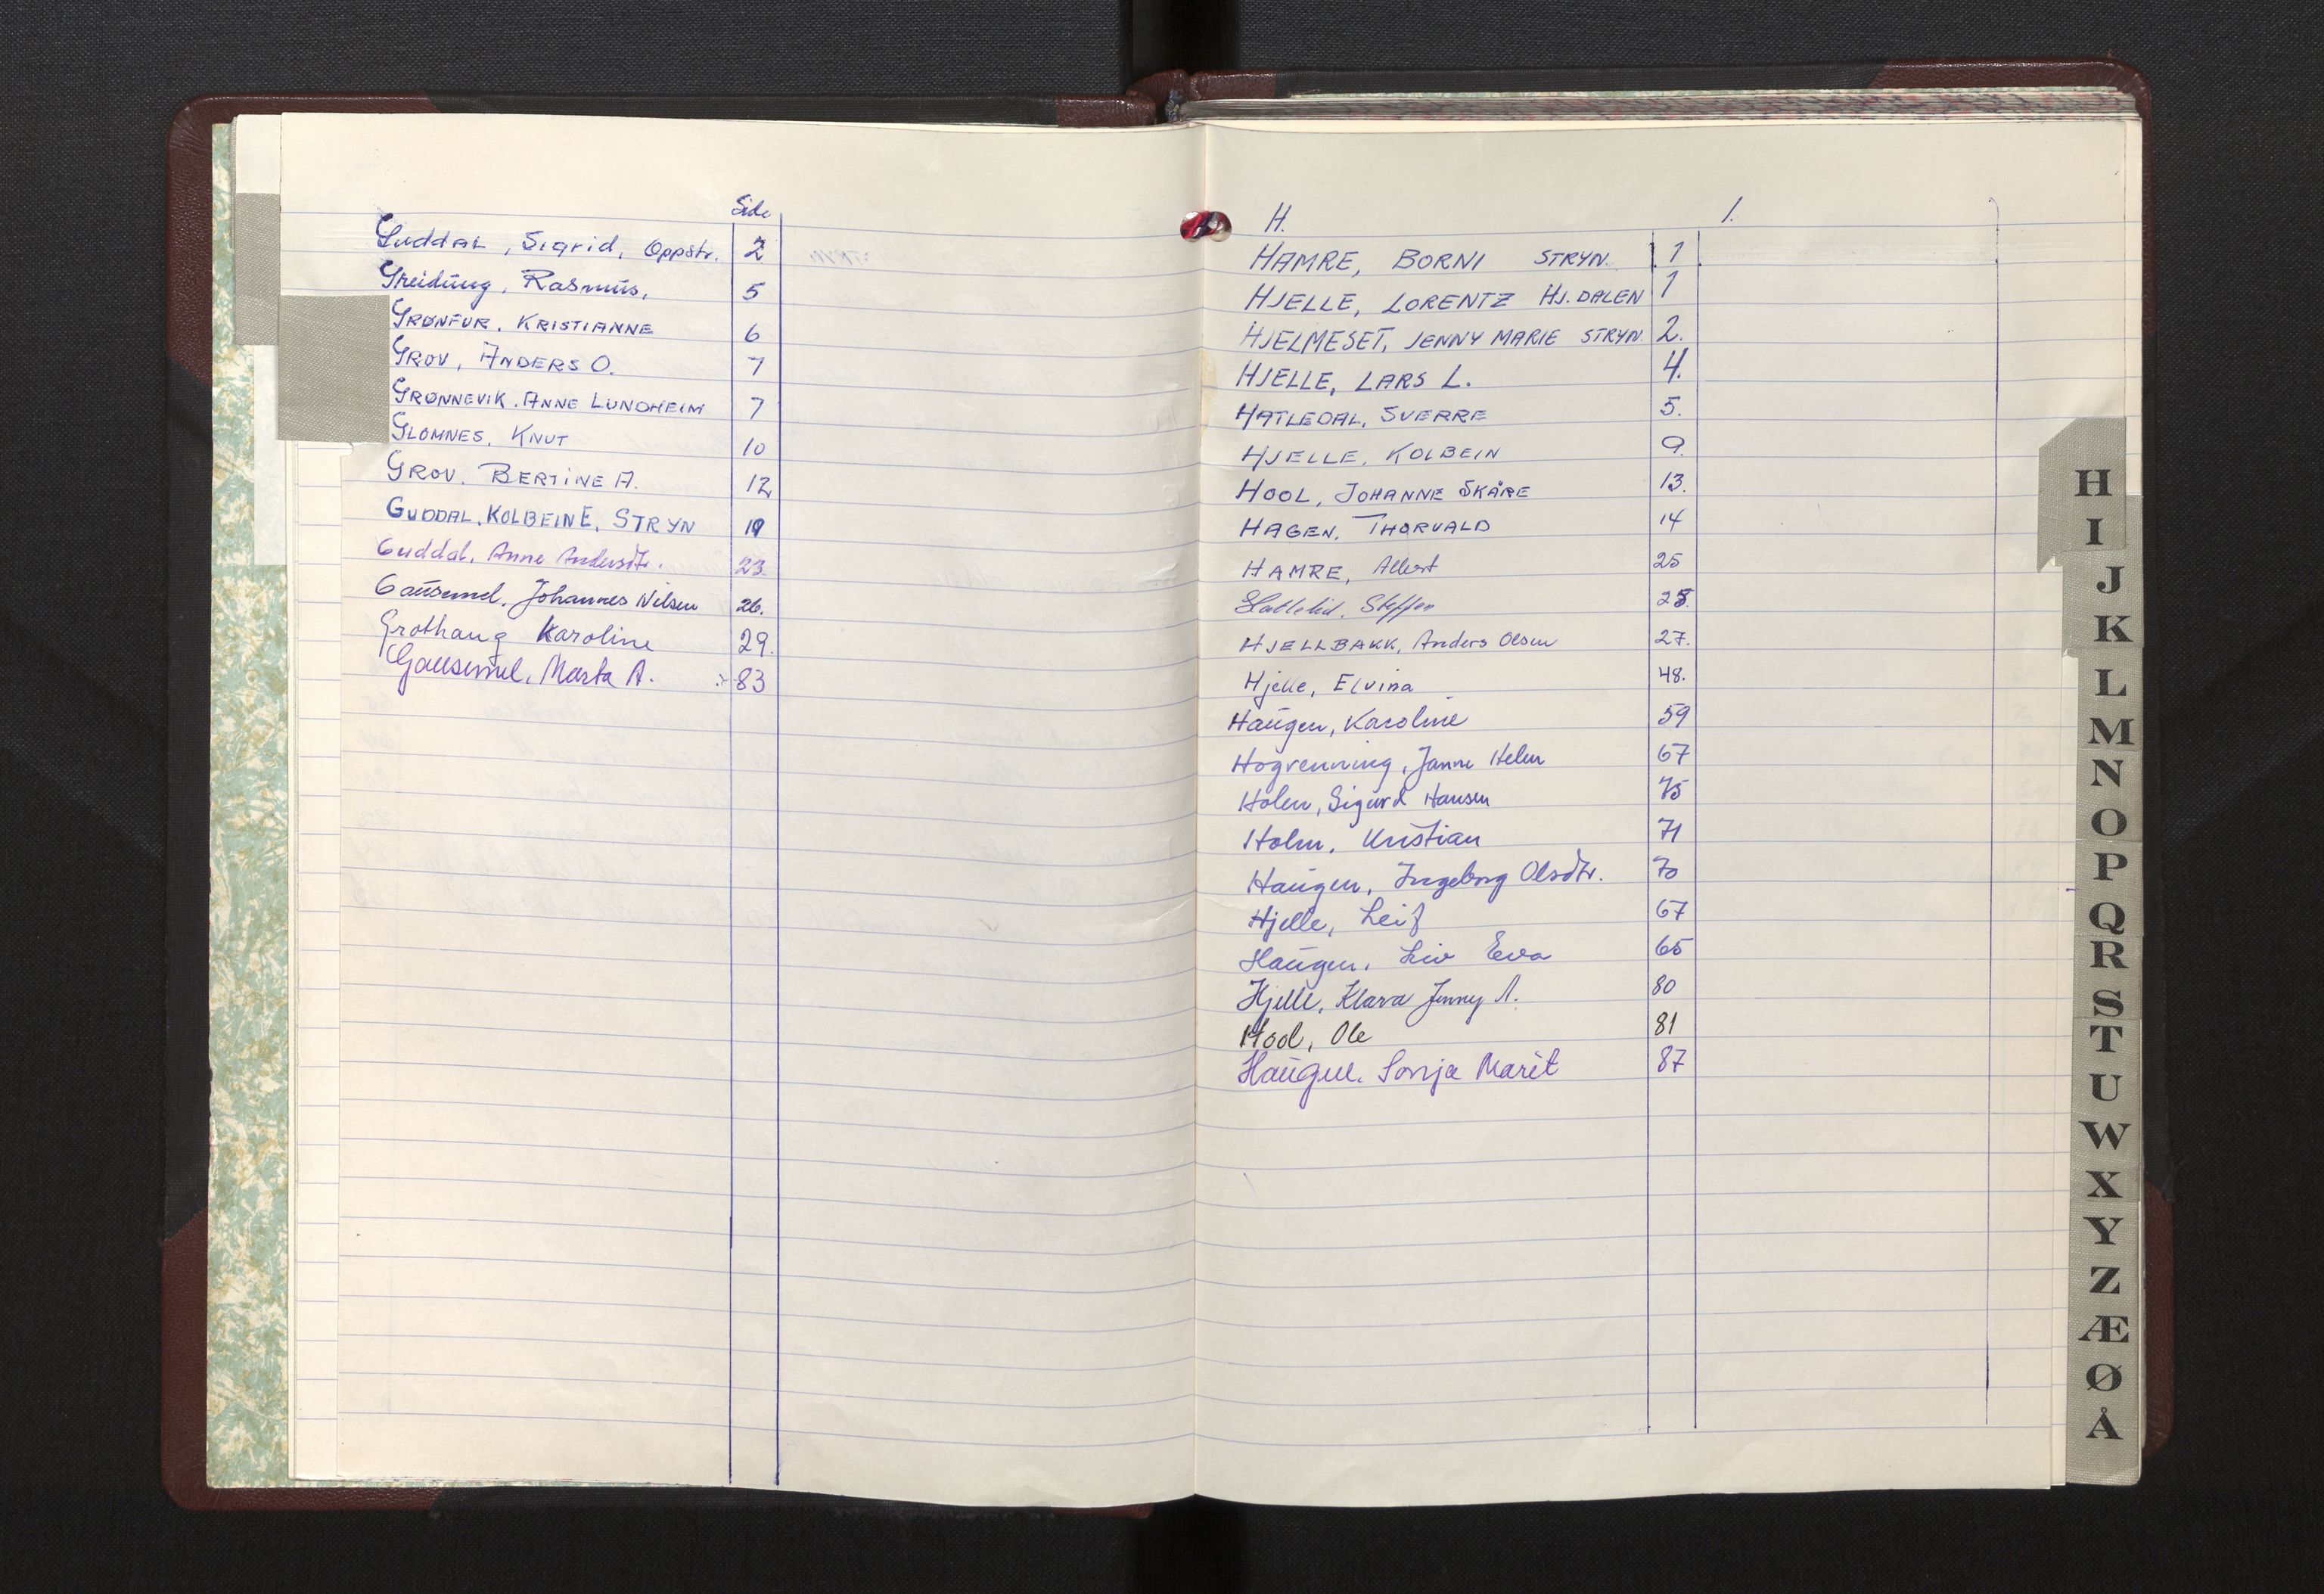 Side
Guddal, Sigrid, Oppstr. 2
Greidung, Rasmus, 5
GRØNFUR, KRISTIANNE 6
GROV, ANDERS O. 7
GRØNNEVIK, ANNE LUNDHEIM 7
GLOMNES, KNUT 10
GROV, BERTINE A. 12
GUDDAL, KOLBEIN E, STRYN
Guddal, Anne Andersdtr. 23.
Gausemel, Johannes Nilsen 26.
Grothaug Karoline 29.
Gausemel, Marta A. 83
H. I.
HAMRE, BORNI STRYN. 1
HJELLE, LORENTZ HJ.DALEN 1
HJELMESET, JENNY MARIE STRYN. 2.
HJELLE, LARS L. 4.
HATLEDAL, SVERRE 5.
HJELLE, KOLBEIN 9.
HOOL, JOHANNE SKÅRE 13.
HAGEN, THORVALD 14
HAMRE, Albert 25
Steffen
HJELLBAKK, Anders Olsen 27.
Hjelle, Elvina 48.
Haugen, Karoline 59
Hogrenning, Janne Helen 67
Holen, Sigurd Hansen 75
Holm, Kristian 71
Haugen, Ingeborg Olsdtr. 70
Hjelle, Leif 67
Haugen, Liv Eva 65
Hjelle, Klara Jenny A. 80
Hool, Ole 81
Haugen, Sonja Marit 87
H
I
J
K
L
M
N
O
P
Q
R
S
T
U
W
X
Y
Z
Æ
Ø
Å